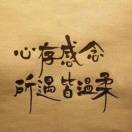 心存感念
所遇皆温柔